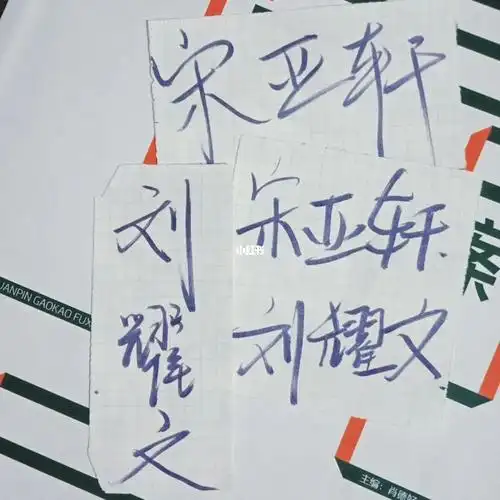 宋亚轩
刘
耀
文
宋亚轩
刘耀文
小红书
UANPIN GAOKAO FUX
主编:肖德好